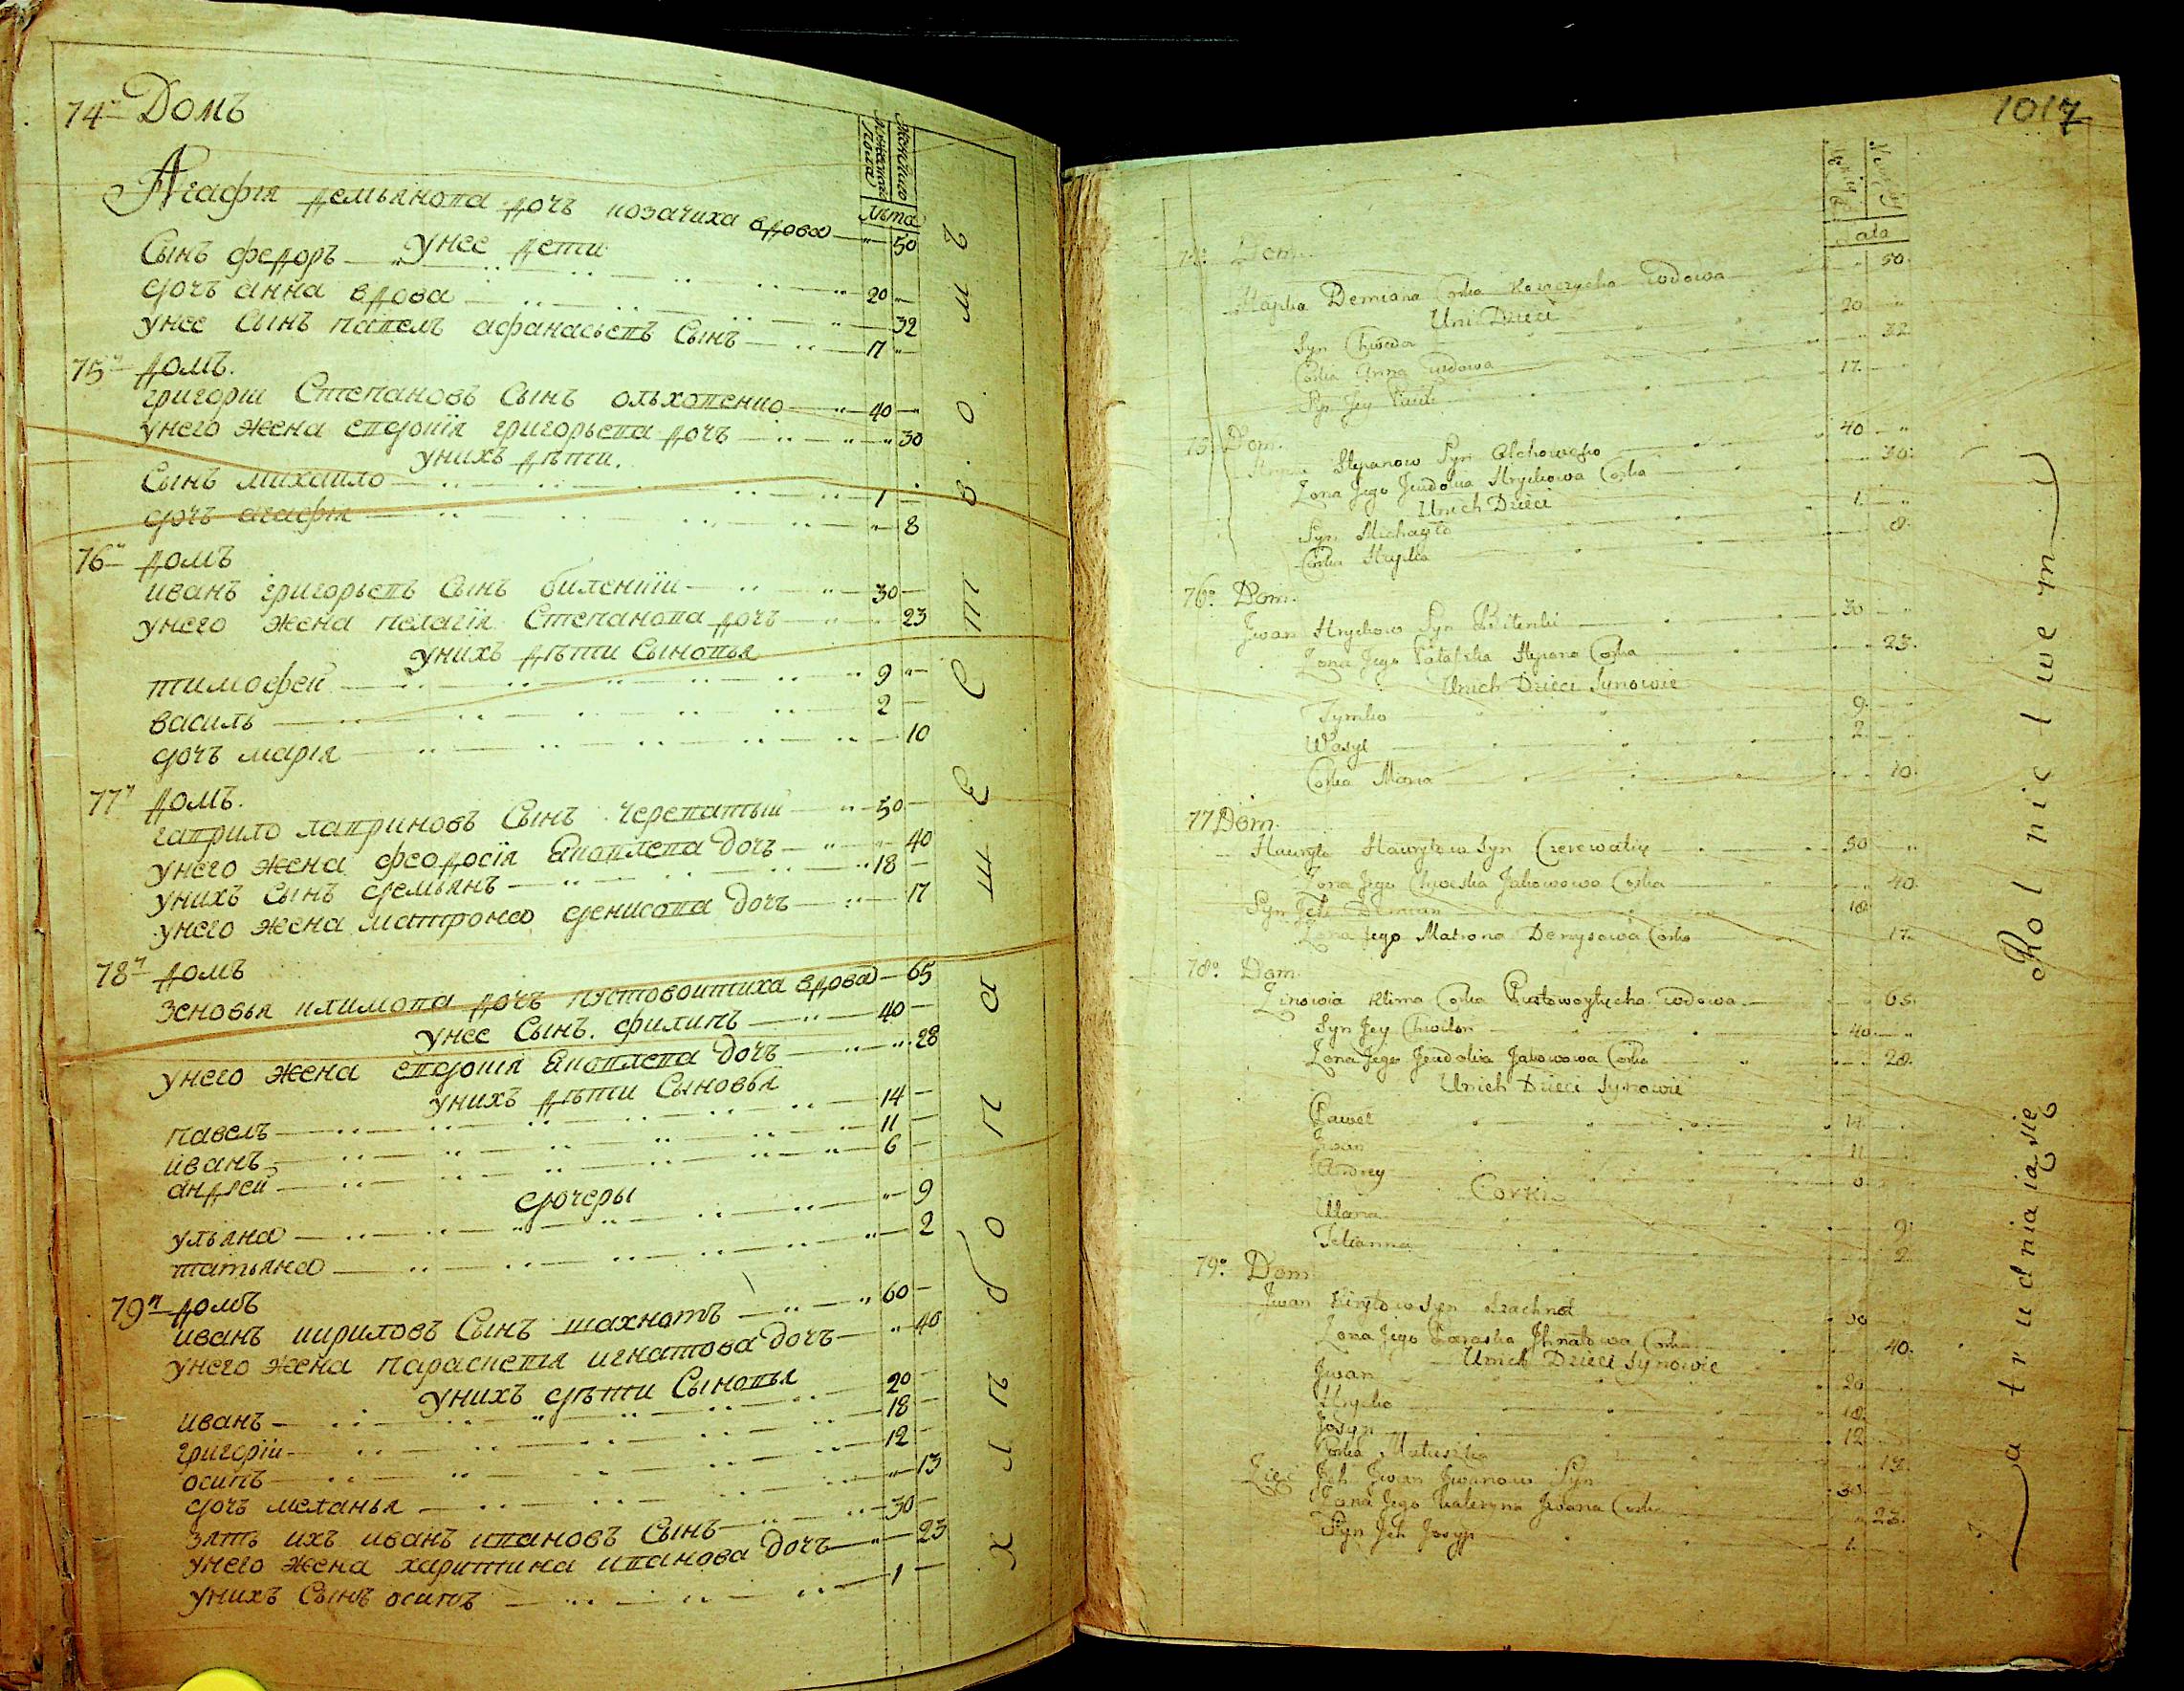 74й Домъ
Женскаго
Мужеска
Пола
Лѣта
Агафія демьянова дочь козачиха вдова 50
унее дети
Сынъ федоръ 20
дочь анна вдова 32
унее Сынъ павелъ афанасьевъ Сынъ 17
75й домъ.
григоріи Степановъ Сынъ ольховенко 40
унего жена евдокія григорьева дочь 30
унихъ дѣти.
Сынъ михаило 1
дочь агафія 8
76й домъ
иванъ григорьевъ Сынъ биленкіи 30
унего жена пелагія Степанова дочь 23
унихъ дѣти Сыновья
тимофей 9
василь 2
дочь марія 10
77й домъ.
гаврило гавриловъ Сынъ череватый 50
унего жена феодосія яковлева дочь 40
унихъ Сынъ демьянъ 18
унего жена матрона денисова дочь 17
78й домъ
Зеновья климова дочь пустовоитиха вдова 65
унее Сынъ. филипъ 40
унего жена евдокія яковлева дочь 28
унихъ дѣти Сыновья
павелъ 14
иванъ 11
андрей 6
дочеры
ульяна 9
татьяна 2
79й домъ
иванъ кириловъ Сынъ шахнотъ 60
унего жена параскевія игнатова дочь 40
унихъ дѣти Сыновья
иванъ 20
григоріи 18
осипъ 12
дочь меланья 13
зять ихъ иванъ ивановъ Сынъ 30
унего жена харитина иванова дочь 23
унихъ Сынъ осипъ 1
1017
Lata
Dom.
Hapka Demiana Corka Kozaczycha wdowa 50.
Uniei Dzieci
Syn Chweder 20
Corka Anna wdowa 32
Syn Jey Pawlo 17.
75. Dom.
Stepanow Syn Olchowenko 40
Zona Jego Jewdokia Hryckowa Corka 30.
Unich Dzieci
Syn Michayło 1.
Corka Hapka 8.
76o Dom.
Jwan Hryckow Syn Bilenki 30
Zona Jego Pałaszka Stepana Corka 23.
Unich Dzieci Synowie
Tymko 9.
Wasyl 2.
Corka Marya 10.
77 Dom.
Hawryło Hawryłow Syn Czerewatiy 50
Zona Jego Chweska Jakowowa Corka 40.
Syn Jch Demian 18
Zona Jego Matrona Denysowa Corka 17.
78o Dom.
Zinowia Klima Corka Pustowoytycha wdowa 65.
Syn Jey Chwilon 40.
Zona Jego Jewdokia Jakowowa Corka 28.
Unich Dzieci Synowie
Paweł 14
Jwan 11
Andrey 6
Corki
Ulana 9.
Tetianna 2
79o Dom
Jwan Kiryłow Syn Szachnot
Zona Jego Paraska Jhnatowa Corka 40.
Unich Dzieci Synowie
Jwan 20
Hrycko 18.
Josyp 12
Corka Małaszka 13.
Zięć Jch Jwan Jwanow Syn 30
Zona Jego Jwana Corka 23.
Syn Jch Josyp 1.
zatrudniaia sie Rolnictwem